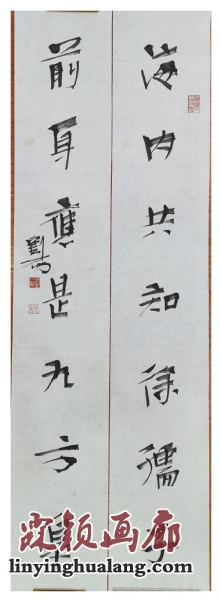 海内共知徐孺子
前身應是九方皋
劉
画廊
www.linyinghualang.com